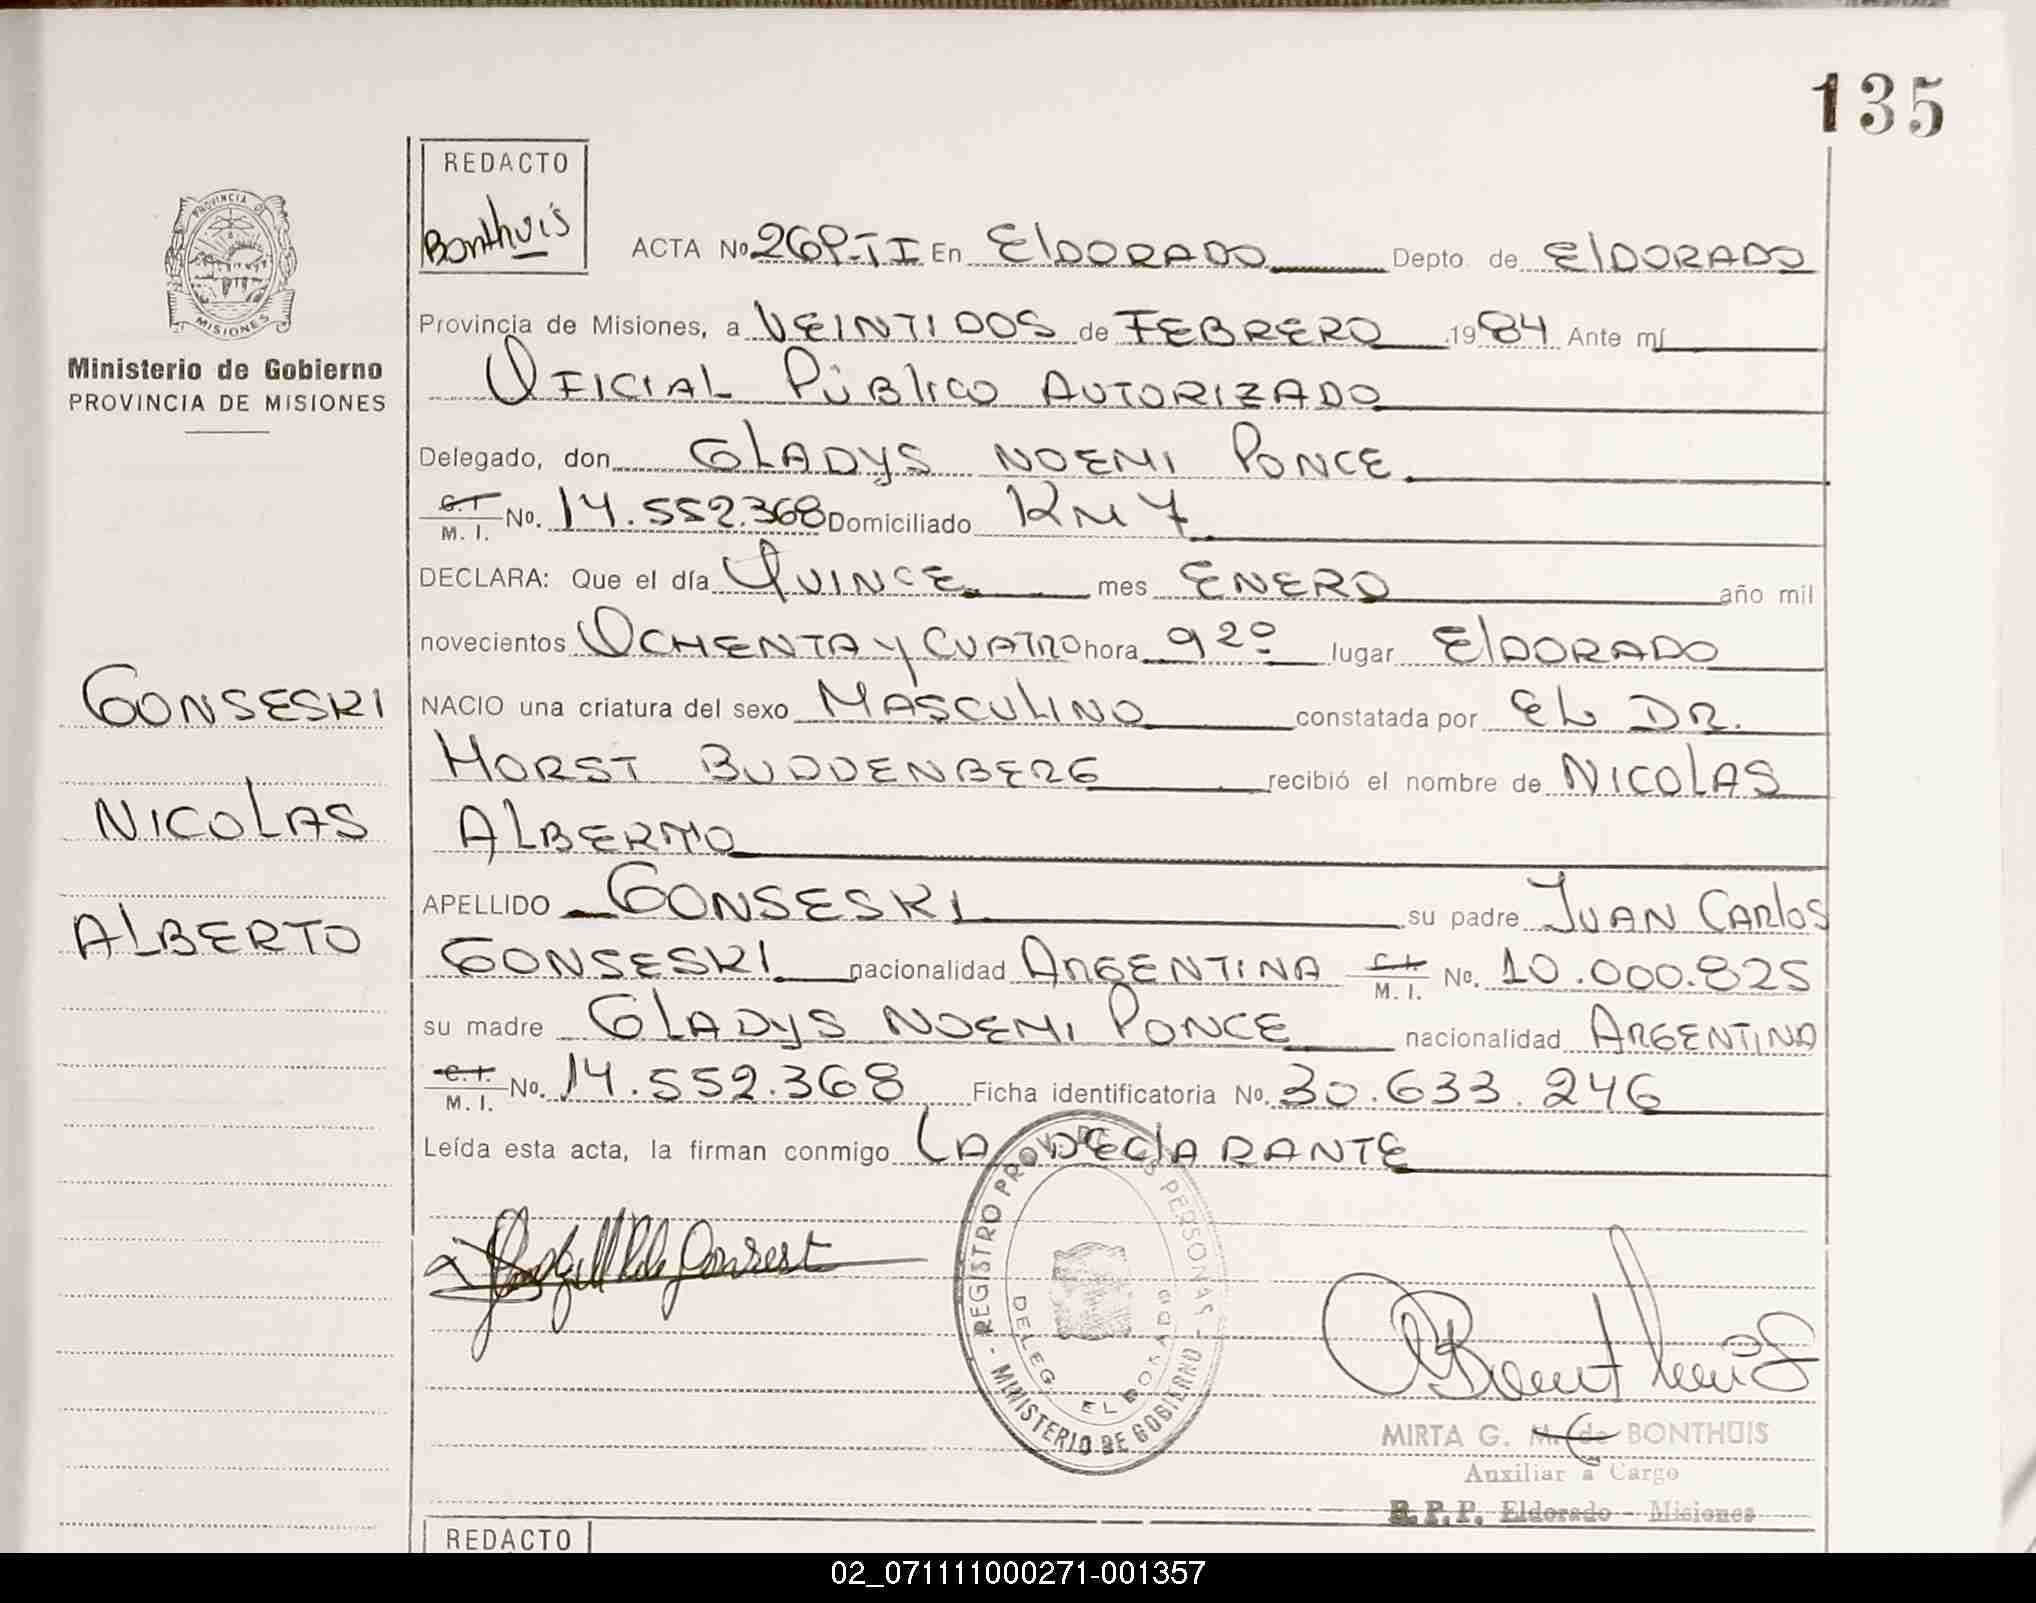 135
REDACTO
Bonthuis
PROVINCIA DE
MISIONES
Ministerio de Gobierno
PROVINCIA DE MISIONES
ACTA No 269-TI En ElDORADO Depto. de ElDORADO
Provincia de Misiones, a VEINTIDOS de FEBRERO 1984 Ante mí
OFICIAL PÚBlICO AUTORIZADO
Delegado, don GLADYS NOEMI PONCE
C.I. M. I. No. 14.552.368 Domiciliado KM 7
DECLARA: Que el día QUINCE mes ENERO año mil
novecientos OCHENTA Y CUATRO hora 9 20 lugar ElDORADO
GONSESKI
NACIO una criatura del sexo MASCULINO constatada por EL DR.
HORST BUDDENBERG recibió el nombre de NICOLAS
NICOLAS
ALBERTO
APELLIDO GONSESKI su padre JUAN CARlOS
ALBERTO
GONSESKI nacionalidad ARGENTINA C.I. M. I. No. 10.000.825
su madre GLADYS NOEMI PONCE nacionalidad ARGENTINA
C.I. M. I. No. 14.552.368 Ficha identificatoria No. 30.633.246
Leída esta acta, la firman conmigo LA DEClARANTE
REGISTRO PROV. DE LAS PERSONAS
MINISTERIO DE GOBIERNO
DELEG. ELDORADO
MIRTA G. M. de BONTHUIS
Auxiliar a Cargo
R.P.P. Eldorado - Misiones
REDACTO
02_071111000271-001357